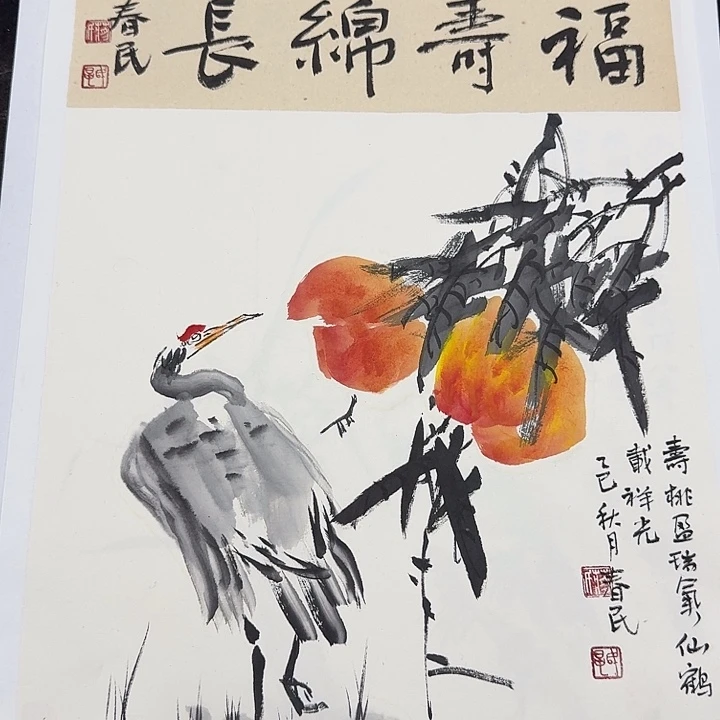 福壽綿長
春民
壽桃盈瑞氣仙鶴
載祥光
乙巳秋月
春民